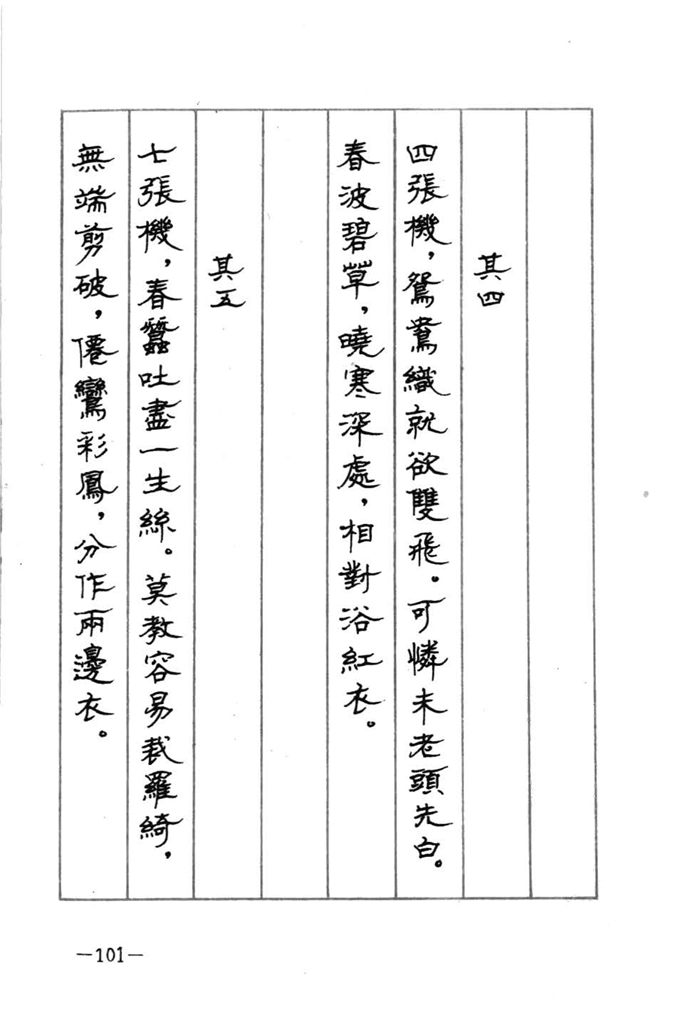 其四
四張機，鴛鴦織就欲雙飛。可憐未老頭先白。
春波碧草，曉寒深處，相對浴紅衣。
其五
七張機，春蠶吐盡一生絲。莫教容易裁羅綺，
無端剪破，僊鸞彩鳳，分作兩邊衣。
—101—